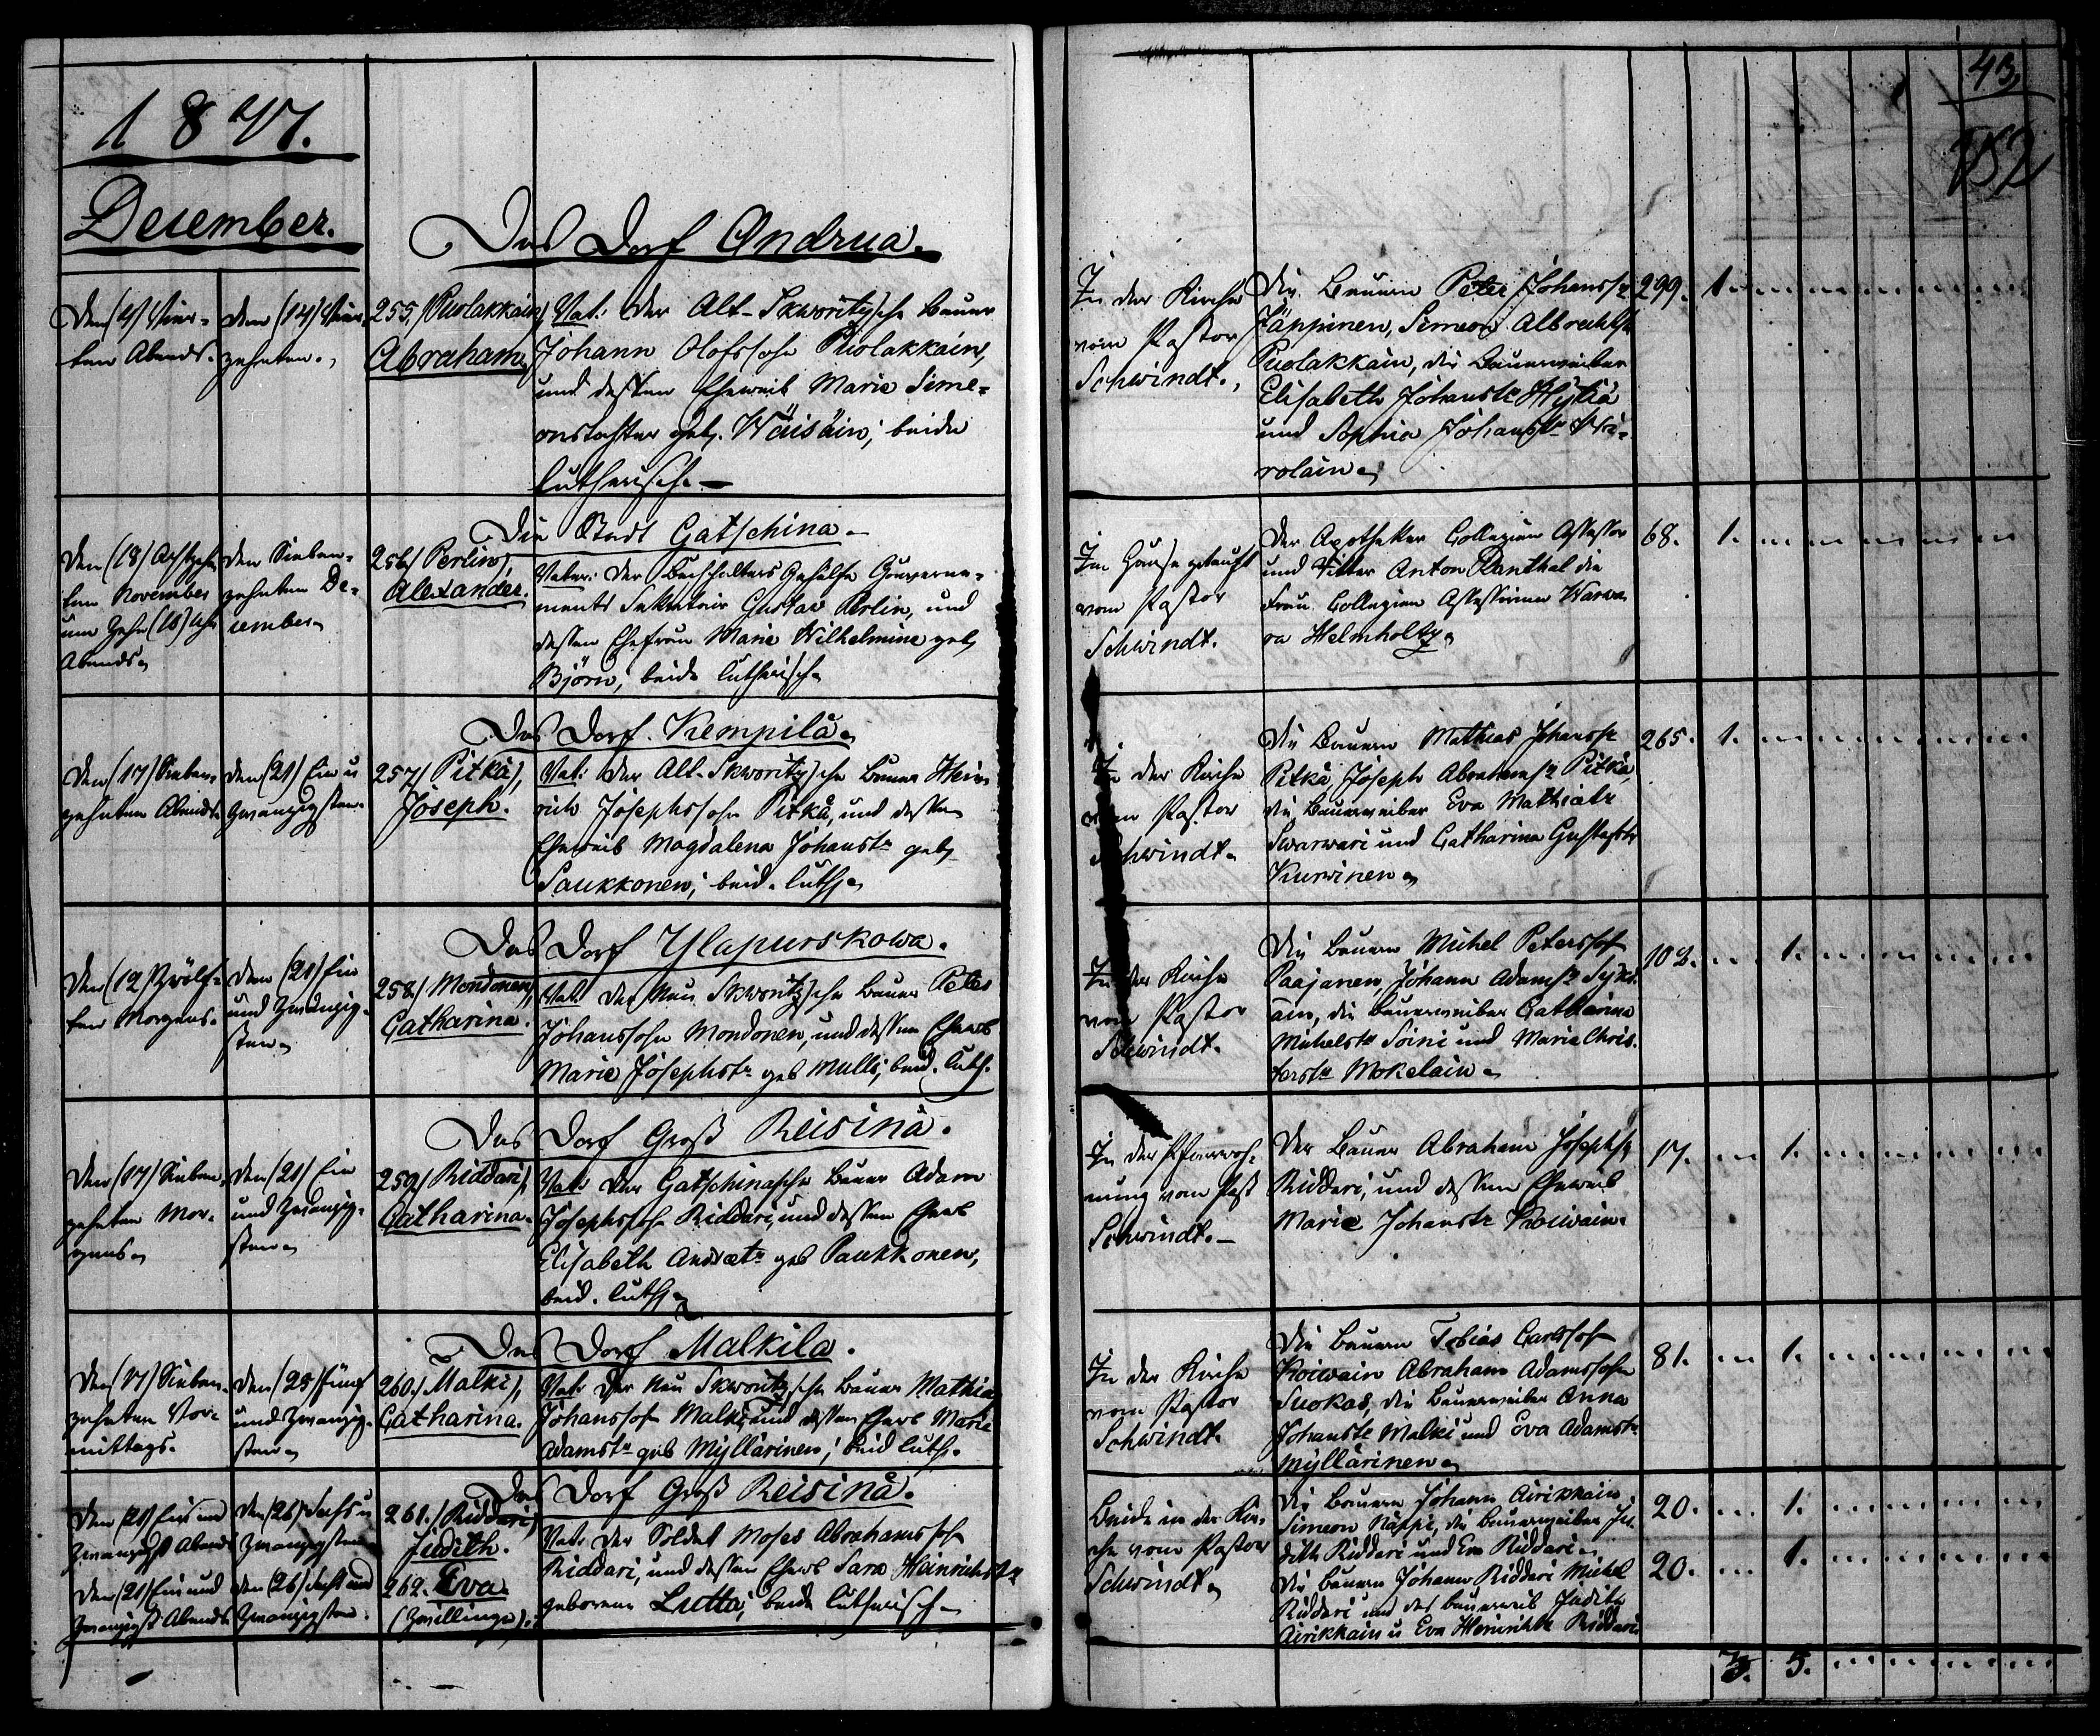 1847.
December.
Das Dorf Andrua.
Den (4) Vier-
ten Abends.
Den (14) Vier-
zehnten.
255./ Puolakkain,
Abraham.
Vat: der Alt-Skworitzsche Bauer
Johann Olofssohn Puolakkain,
und dessen Eheweib Maria Sime-
onstochter geb. Wäisäin; beide
lutherisch.
In der Kirche
vom Pastor
Schwindt.
Die Bauern Peter Johanss.
Jäppinen, Simeon Albrechts.
Puolakkain, die Bauerweiber
Elisabeth Johanstr
und Sophia Johanstr
rolain.
299. 1.
Die Stadt Gatschina.
Den (18) Achtzehn-
ten November
um Zehn (10) Uhr
Abends.
Den Sieben-
zehnten De-
cember.
256./ Perlin,
Alexander.
Vater: der Buchhalters Gehülfe Gouverne-
ments Sekretair Gustav Perlin, und
dessen Ehefrau Marie Wilhelmine geb
Björn; beide lutherisch.
Im Hause getauft
vom Pastor
Schwindt.
Der Apotheker Collegien Assessor
und Ritter Anton die
Frau Collegien Assessorin Warwa-
ra Helmholtz.
68. 1.
Das Dorf Kempilä.
Den (17) Sieben-
zehnten Abends.
Den (21) Ein u
Zwanzigsten.
257./ Pitkä,
Joseph.
Vat: der Alt-Skworitzsche Bauer Hein-
rich Josephssohn Pitkä, und dessen
Eheweib Magdalena Johanstr geb
Saukkonen; beid. luth.
In der Kirche
vom Pastor
Schwindt.
Die Bauern Mathias Johanss
Pitkä Joseph Abrahams Pitkä,
die Bauerweiber Eva Mathiastr
Swarwari und Catharina Gustafstr
Kurwinen.
265. 1.
Das Dorf Ylapurskowa.
Den (12) Zwölf-
ten Morgens.
Den (21) Ein
und Zwanzig-
sten.
258./ Mondonen,
Catharina.
Vat: der Neu Skworitzsche Bauer Peter
Johanssohn Mondonen, und dessen Ehewb
Marie Josephstr geb Mulli; beid. luth.
In der Kirche
vom Pastor
Schwindt.
Die Bauern Michel Peterssohn
Paajanen, Johann Adams
äin, die Bauerweiber Catharina
Michelstr Soini und Maria Chris-
terstr Mokelain.
102. 1.
Das Dorf Groß Reisinä.
Den (17) Sieben-
zehnten Mor-
gens.
Den (21) Ein
und Zwanzig-
sten.
259./ Riddari,
Catharina.
Vat: der Gatschinasche Bauer Adam
Josephssohn Riddari, und dessen Ehewb
Elisabeth Andreatr geb Paukkonen,
beid. luth.
In der Pfarrwoh-
nung vom Past
Schwindt.
Der Bauer Abraham Josephs
Riddari, und dessen Eheweib
Maria Johanstr Koiwain.
17. 1.
Das Dorf Malkila.
Den (17) Sieben-
zehnten Vor-
mittags.
Den (25) Fünf
und Zwanzig-
sten.
260./ Malki,
Catharina.
Vat: der Neu Skworitzsche Bauer Mathias
Johanssohn Malki, und dessen Ehewb Maria
Adamstr geb Myllärinen; beid luth.
In der Kirche
vom Pastor
Schwindt.
Die Bauern Tobias Carlssohn
Koiwain Abraham Adamssohn
Suokas, die Bauerweiber Anna
Johanstr Malki und Eva Adamstr
Myllärinen.
81. 1.
Das Dorf Groß Reisinä.
Den (21) Ein und
Zwanzigst Abends
Den (26) Sechs u
Zwanzigsten
261./ Riddari,
Judith.
Den (21) Ein und
Zwanzigst Abends
Den (26) Sechs und
Zwanzigsten.
262. Eva
(Zwillinge).
Vat: der Soldat Moses Abrahamssohn
Riddari, und dessen Ehewb Sara Heinrichstr
geborene Lutta; beide lutherisch.
Beide in der Kir-
che vom Pastor
Schwindt.
Die Bauern Johann Airikkain
Simeon Näppi, die Bauerweiber Ju-
dith Riddari und Eva Riddari.
Die Bauern Johann Riddari Michel
Riddari und das Bauerweib Judith
Airikkain u Eva Heinrichstr Riddari
20. 1.
20. 1.
43.
152
3. 5.